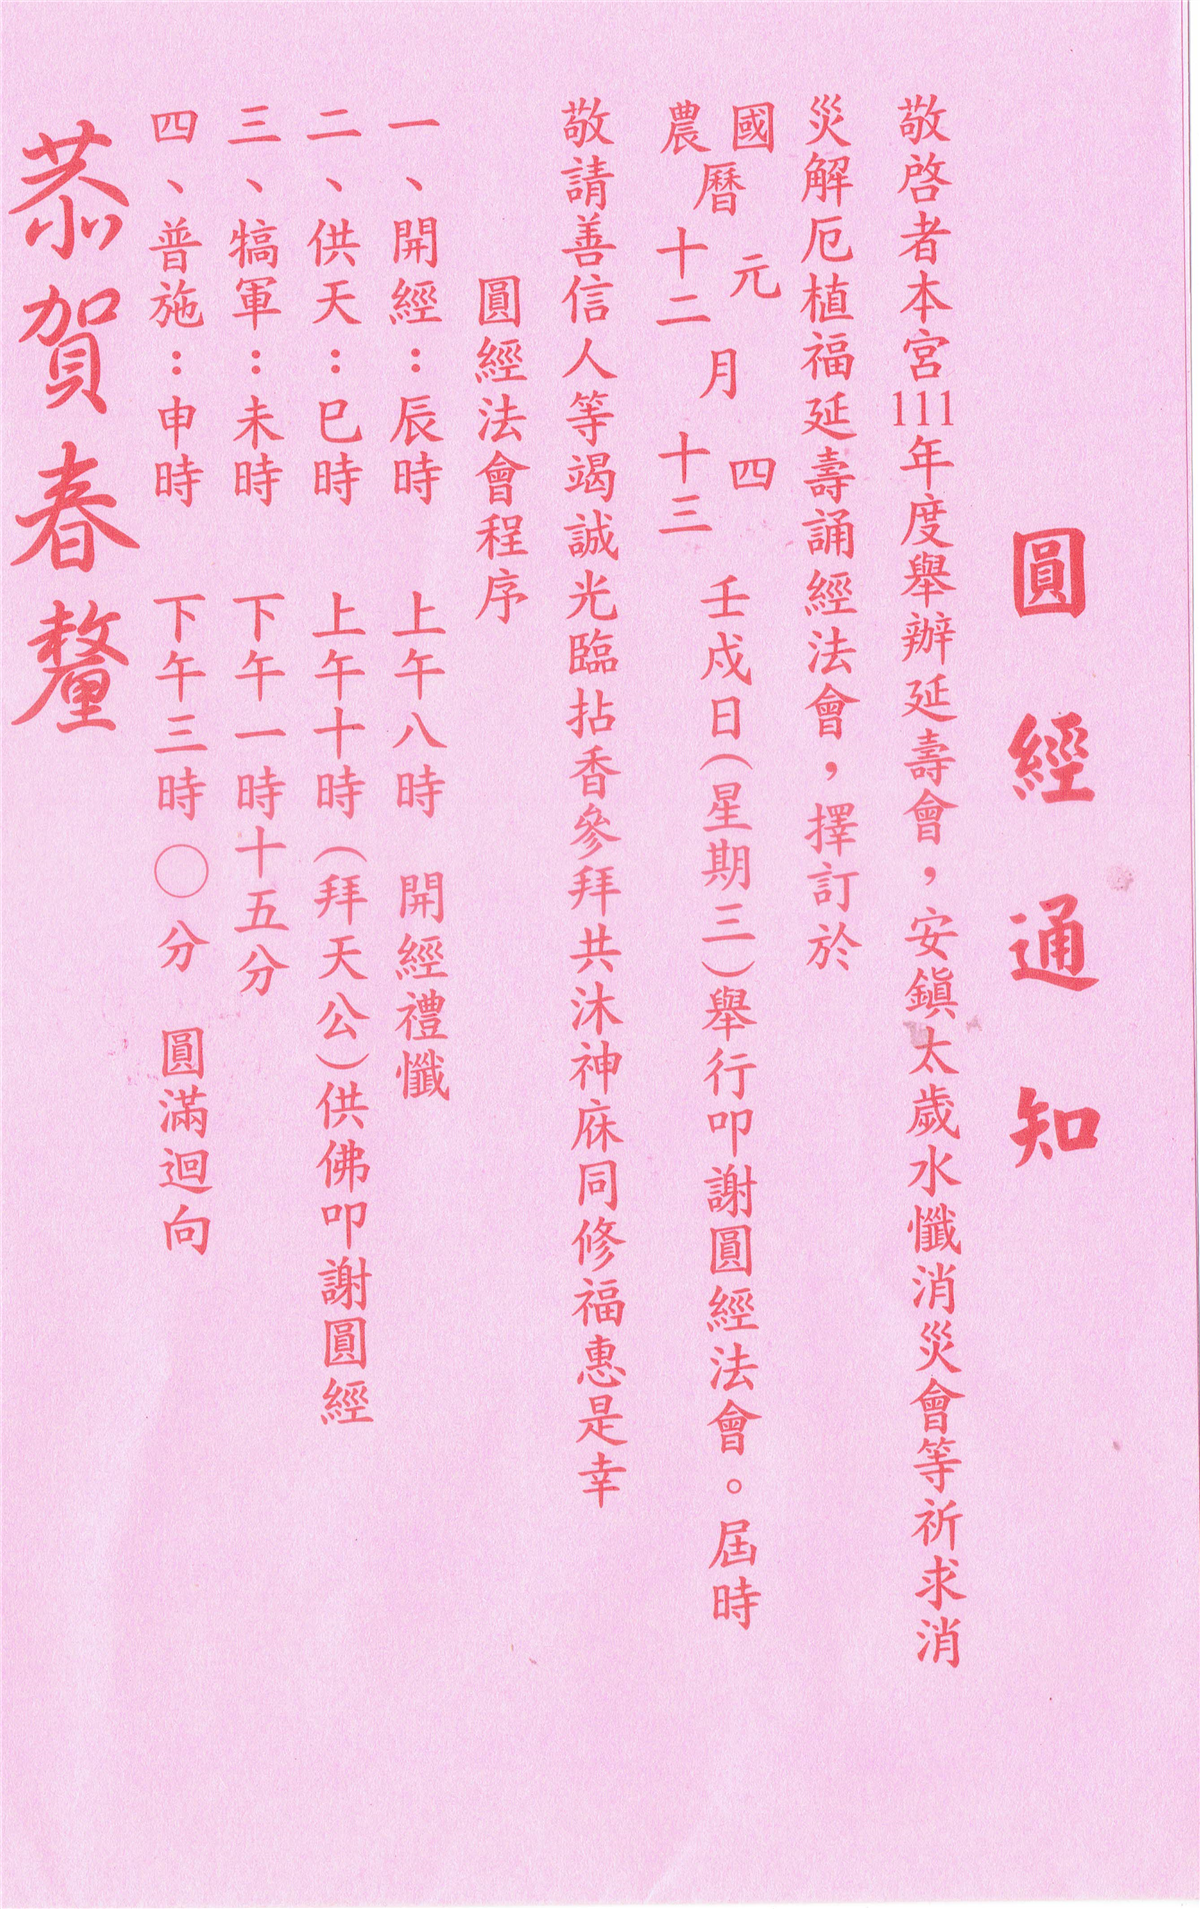 圓經通知
敬啓者本宮111年度舉辦延壽會，安鎮太歲水懺消災會等祈求消
災解厄植福延壽誦經法會，擇訂於
國曆元月四
農曆十二月十三
壬戍日（星期三）舉行叩謝圓經法會。屆時
敬請善信人等竭誠光臨拈香參拜共沐神庥同修福惠是幸
圓經法會程序
一、開經：辰時　上午八時　開經禮懺
二、供天：巳時　上午十時（拜天公）供佛叩謝圓經
三、犒軍：未時　下午一時十五分
四、普施：申時　下午三時〇分　圓滿迴向
恭賀春釐